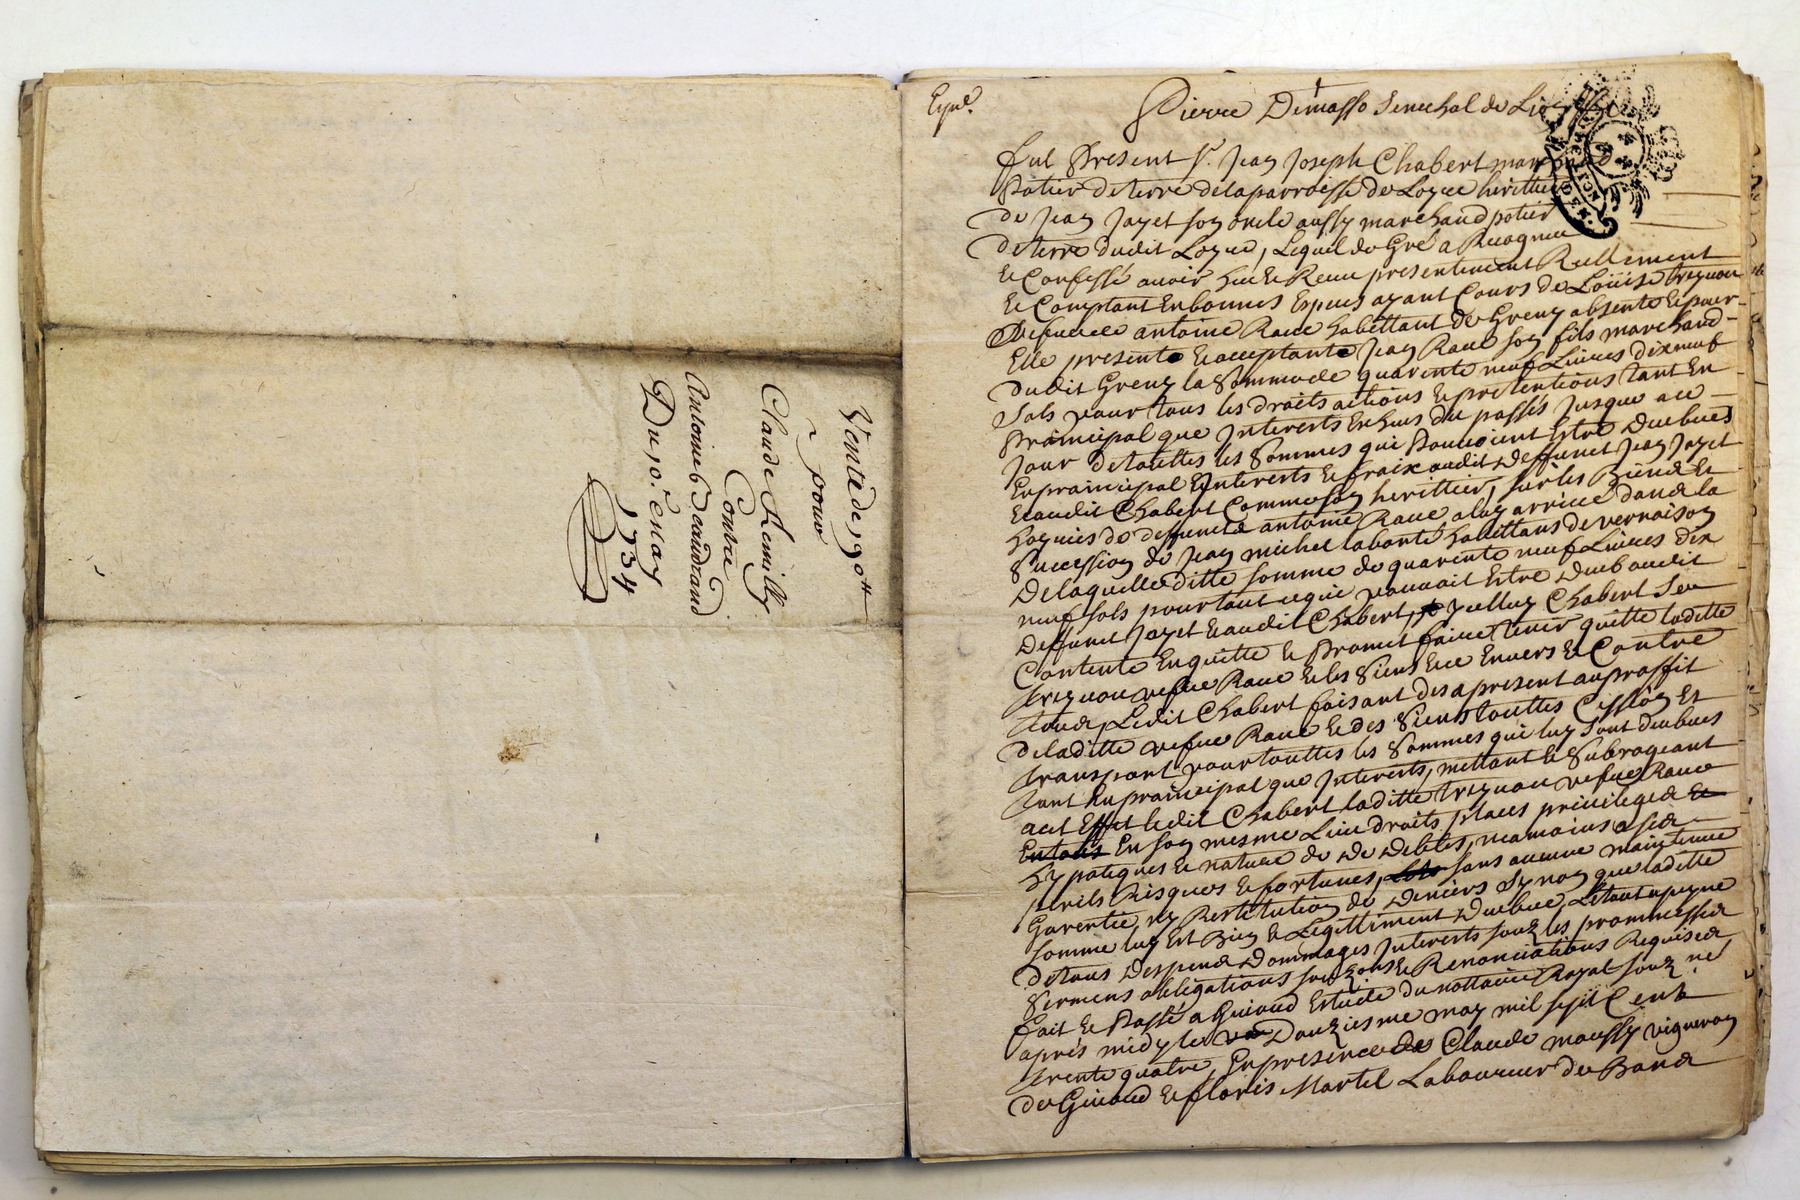 Vente de 190 ₶
pour
Claude Remilly
Contre
Antoine Beaudrand
Du 10.e may
1734
Expé.
Pierre Demasso Senechal de Lion
fut Present Sr. Jean Joseph Chabert marchand
Potier de terre de la parroisse de Loyre herittier
de Jean Jayet son oncle aussy marchand potier
de terre dudit Loyre, Lequel de Gré a Recognu
et Confessé avoir heu et Receu presentement Reellement
et Comptant En bonnes Especes ayant Cours de Louise
vefue de antoine Raue habittant de Greny absente et pour
Elle presente et acceptante Jean Raue son fils marchand
dudit Greny la Somme de quarente neuf Livres dixneuf
Sols pour tous les droits actions et pretentions tant En
Principal que Interests Enhus du passés jusque a ce
Jour de touttes les Sommes qui Pouvoient Estre Duebues
En principal Interests et fraix audit Deffunct Jean Jayet
Et audit Chabert Comme son herittier, sur les Biens Et
hoyries de deffuncts antoine Raue a luy arrivée dans la
Succession de Jean michel laborté habittans de vernaison
De laquelle ditte somme de quarente neuf Livres dix
neuf sols pour tout ce qui pouvoit Estre Dueb audit
Deffunct Jayet Et audit Chabert, Icelluy Chabert Sen
Contente En quitte et Promet faire tenir quitte laditte
vefue Raue et les Siens Envers et Contre
tous, Ledit Chabert faisant des a present au proffit
de laditte vefue Raue et des Siens touttes Cession Et
transport pour touttes les Sommes qui luy sont Duebues
tant En principal que Interests, mettant et Subrogeant
a cet Effet ledit Chabert laditte vefue Raue
En son mesme Lieu droits places privileges et
hypoteques et nature de Debtes, neamoins a ses
perils Risques et fortunes, sans aucune maintenue
Garentie, ny Restitution de Deniers Synon que laditte
Somme luy Est Bien et Legittiment Duebue, Le tout a peyne
de tous Despens Dommages Interests souz les prommesses
Sermens obligations souz et Renonciations Requises
fait et Passé a Guivoud Estude du nottaire Royal souz.né
apres midy le Douziesme may mil sept Cent
trente quatre, En presence de Claude moussy vigneron
de Guivoud et floris Martel Laboureur de Bans